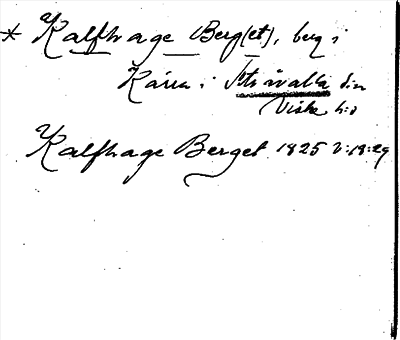 * Kalfhage Berg(et), berg i
Kärra i Stråvalla sn
Viske h:d
Kalfhage Berget 1825 2:18:29